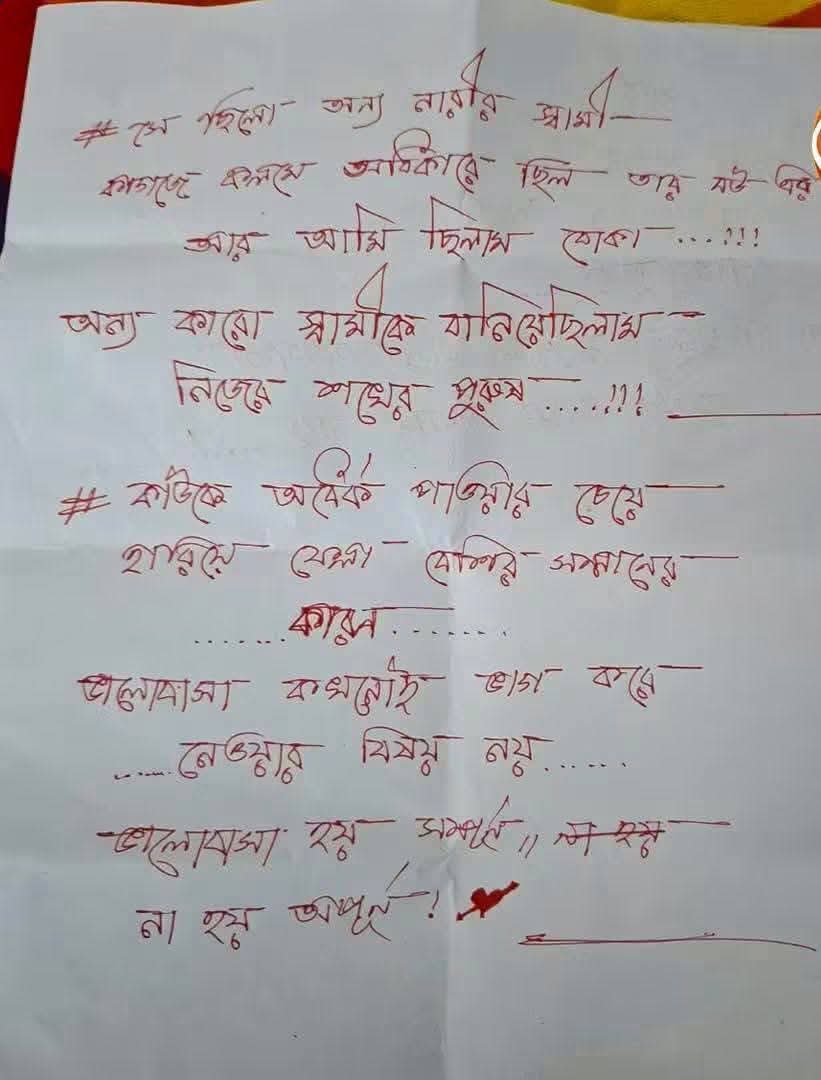 # সে ছিলো অন্য নারীর স্বামী
কাগজে কলমে অধিকারে ছিল তার বউ
আর আমি ছিলাম বোকা ...!!!
অন্য কারো স্বামীকে বানিয়েছিলাম
নিজের শখের পুরুষ ....!!!
# কাউকে অর্ধেক পাওয়ার চেয়ে
হারিয়ে ফেলা বেশির সম্মানের
.......কারন.......
ভালোবাসা কখনোই ভাগ করে
......নেওয়ার বিষয় নয়......
ভালোবাসা হয় সম্পূর্ন,,
না হয় অপূর্ন !